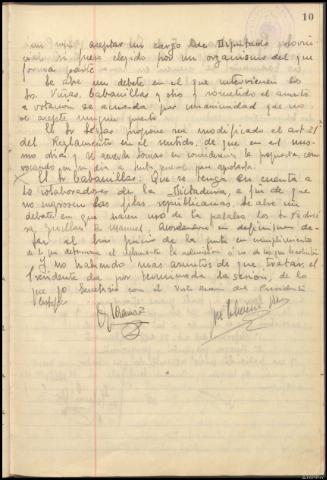 10
aceptar un cargo de Diputado provin
cial si fuese elegido por un organismo del que
forma parte
Se abre un debate en el que intervienen los
Srs. Viñas, Cabanillas y otro y sometido el asunto
a votación se acuerda por unanimidad que no
se acepte ningun puesto
El Sr propone sea modificado el art. 21
del Reglamento en el sentido, de que en el mis
mo dia y se acuerda tomar en consideracion la propuesta con
vocando en su dia a junta general para aprobarla
X El Sr Cabanillas: Que se tenga en cuenta a
los colaboradores de la Dictadura, a fin de que
no ingresen las filas republicanas. Se abre un
debate en que hacen uso de la palabra los Sr
y Manuel, Acordandose en definitiva de
jar al buen juicio de la junta en cumplimiento
de lo que determina el Reglamento la admision ó no de los que lo soliciten
Y no habiendo mas asuntos de que tratar, el
Presidente da por terminada la sesion, de lo
que yo Secretario con el Visto Bueno del Presidente
Certifico